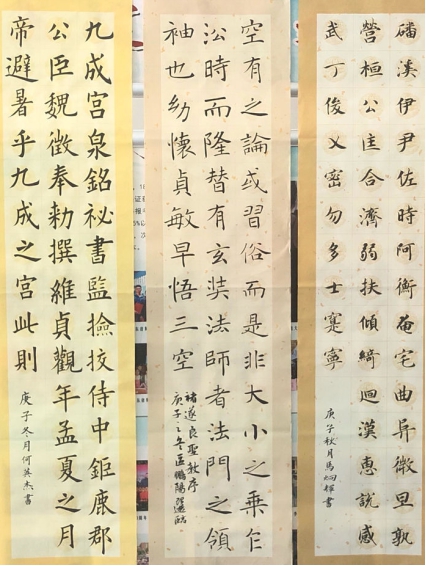 磻溪伊尹佐時阿衡奄宅曲阜微旦孰
營桓公匡合濟弱扶傾綺迴漢惠說感
武丁俊乂密勿多士寔寧
庚子秋月馬炯輝書
空有之論或習俗而是非大小之乘乍
沿時而隆替有玄奘法師者法門之領
袖也幼懷貞敏早悟三空
褚遂良聖教序
庚子之冬孟鵬陽選臨
九成宮泉銘祕書監撿挍侍中鉅鹿郡
公臣魏徵奉勑撰維貞觀年孟夏之月
帝避暑乎九成之宮此則
庚子冬月何英杰書